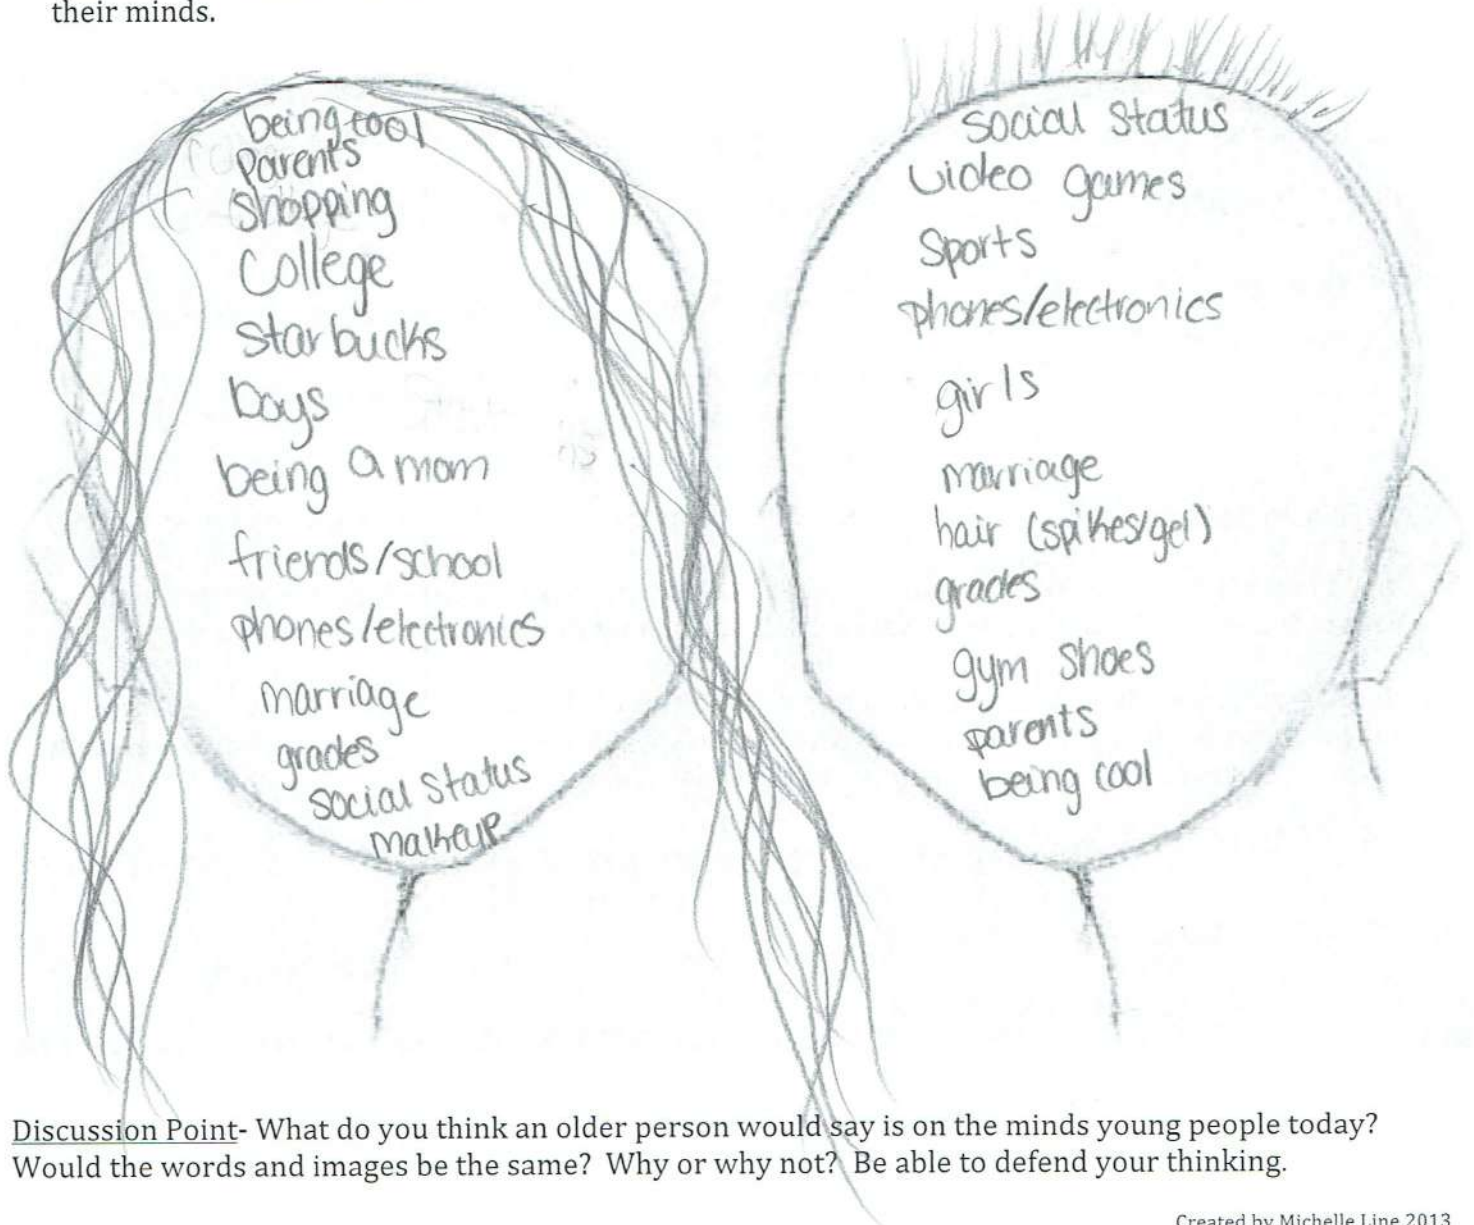 their minds.
being cool
Parents
Shopping
College
starbucks
boys
being a mom
friends/school
phones/electronics
marriage
grades
social status
makeup
social status
video games
Sports
phones/electronics
girls
marriage
hair (spikes/gel)
grades
gym shoes
parents
being cool
Discussion Point- What do you think an older person would say is on the minds young people today?
Would the words and images be the same? Why or why not? Be able to defend your thinking.
Created by Michelle Line 2013